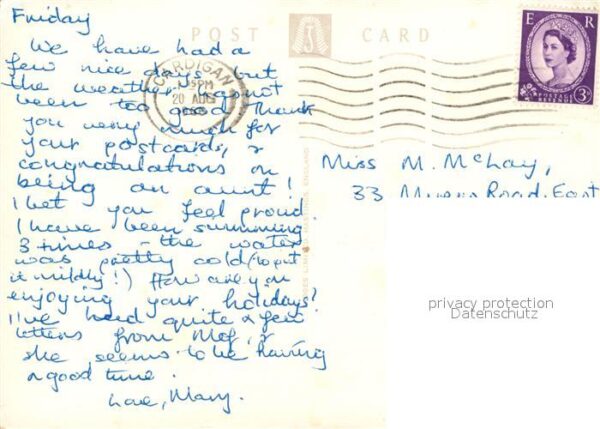 POST CARD
E R
POSTAGE REVENUE
3D
CARDIGAN
PM
20 AUG
Friday
We have had a
few nice days but
the weather has not
been too good. Thank
you very much for
your postcards, &
congratulations on
being an aunt!
I bet you feel proud.
I have been swimming
3 times - the water
was pretty cold (to put
it mildly!) How are you
enjoying your holidays?
I've had quite a few
letters from Mof, &
she seems to be having
a good time.
Love, Mary.
Miss M. McLay,
33 Road East
privacy protection
Datenschutz